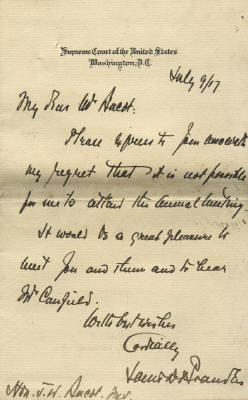 Supreme Court of the United States
Washington, D.C.
July 9/17
My dear Mr Bacot:
Please express to your associates
my regret that it is not possible
for me to attend the annual meeting.
It would be a great pleasure to
meet you and them and to hear
Mr Canfield.
With best wishes
Cordially
Louis D. Brandeis
Hon. J. W. Bacot. Pres.